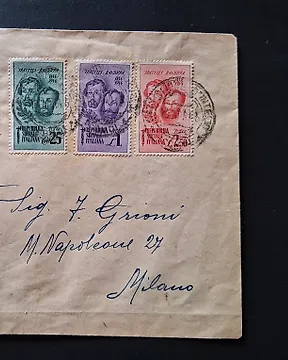 FRATELLI BANDIERA
FRATELLI BANDIERA
FRATELLI BANDIERA
REPUBBLICA SOCIALE ITALIANA
25
REPUBBLICA SOCIALE ITALIANA
1
REPUBBLICA SOCIALE ITALIANA
2,50
Sig. F. Grioni
M. Napoleone 27
Milano